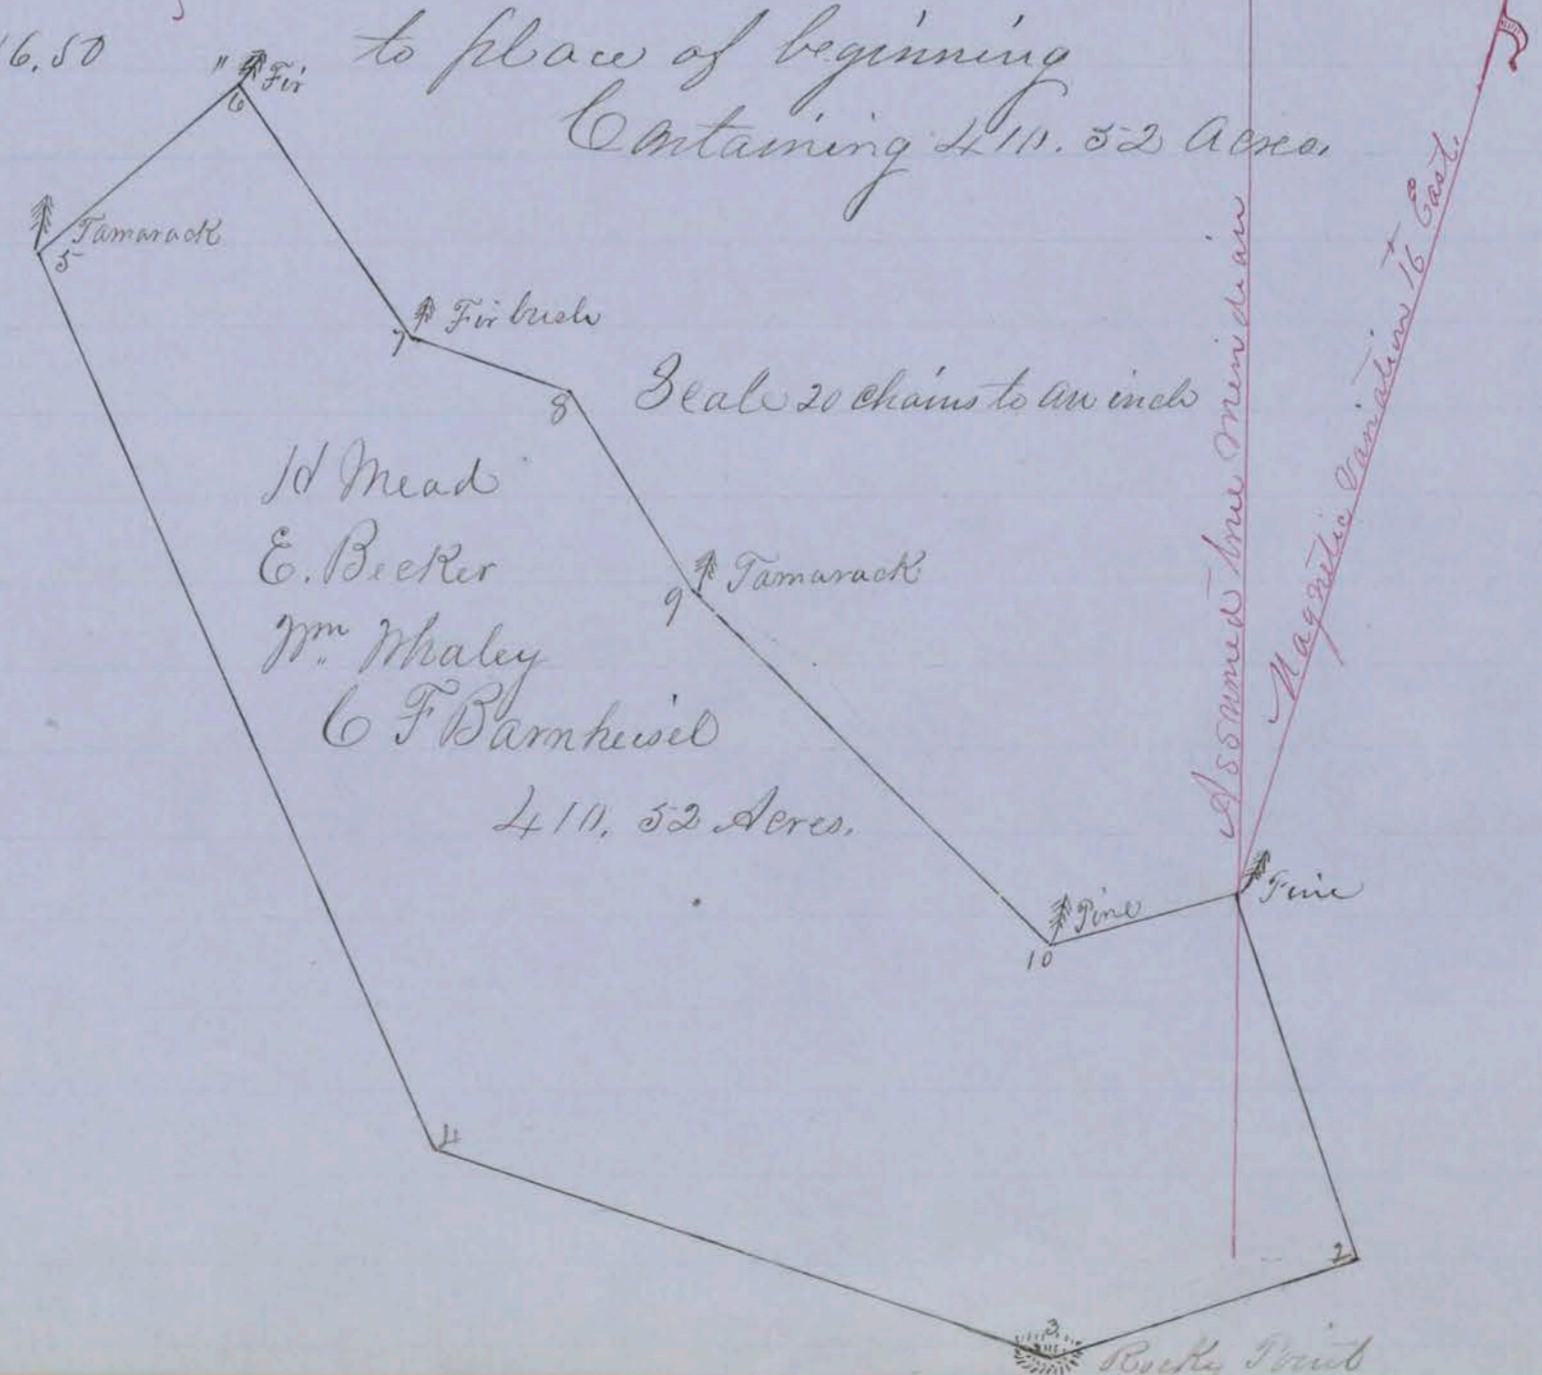 16.50 " Fir to place of beginning
6
Containing 410.52 Acres.
Tamarack
5
Fir bush
7
8
Scale 20 chains to an inch
H Mead
E. Becker
Wm Whaley
C F Barnheisel
410.52 Acres.
Tamarack
9
Assumed true meridian
Magnetic Variation 16 East.
Pine
10
Pine
4
2
3
Rocky Point